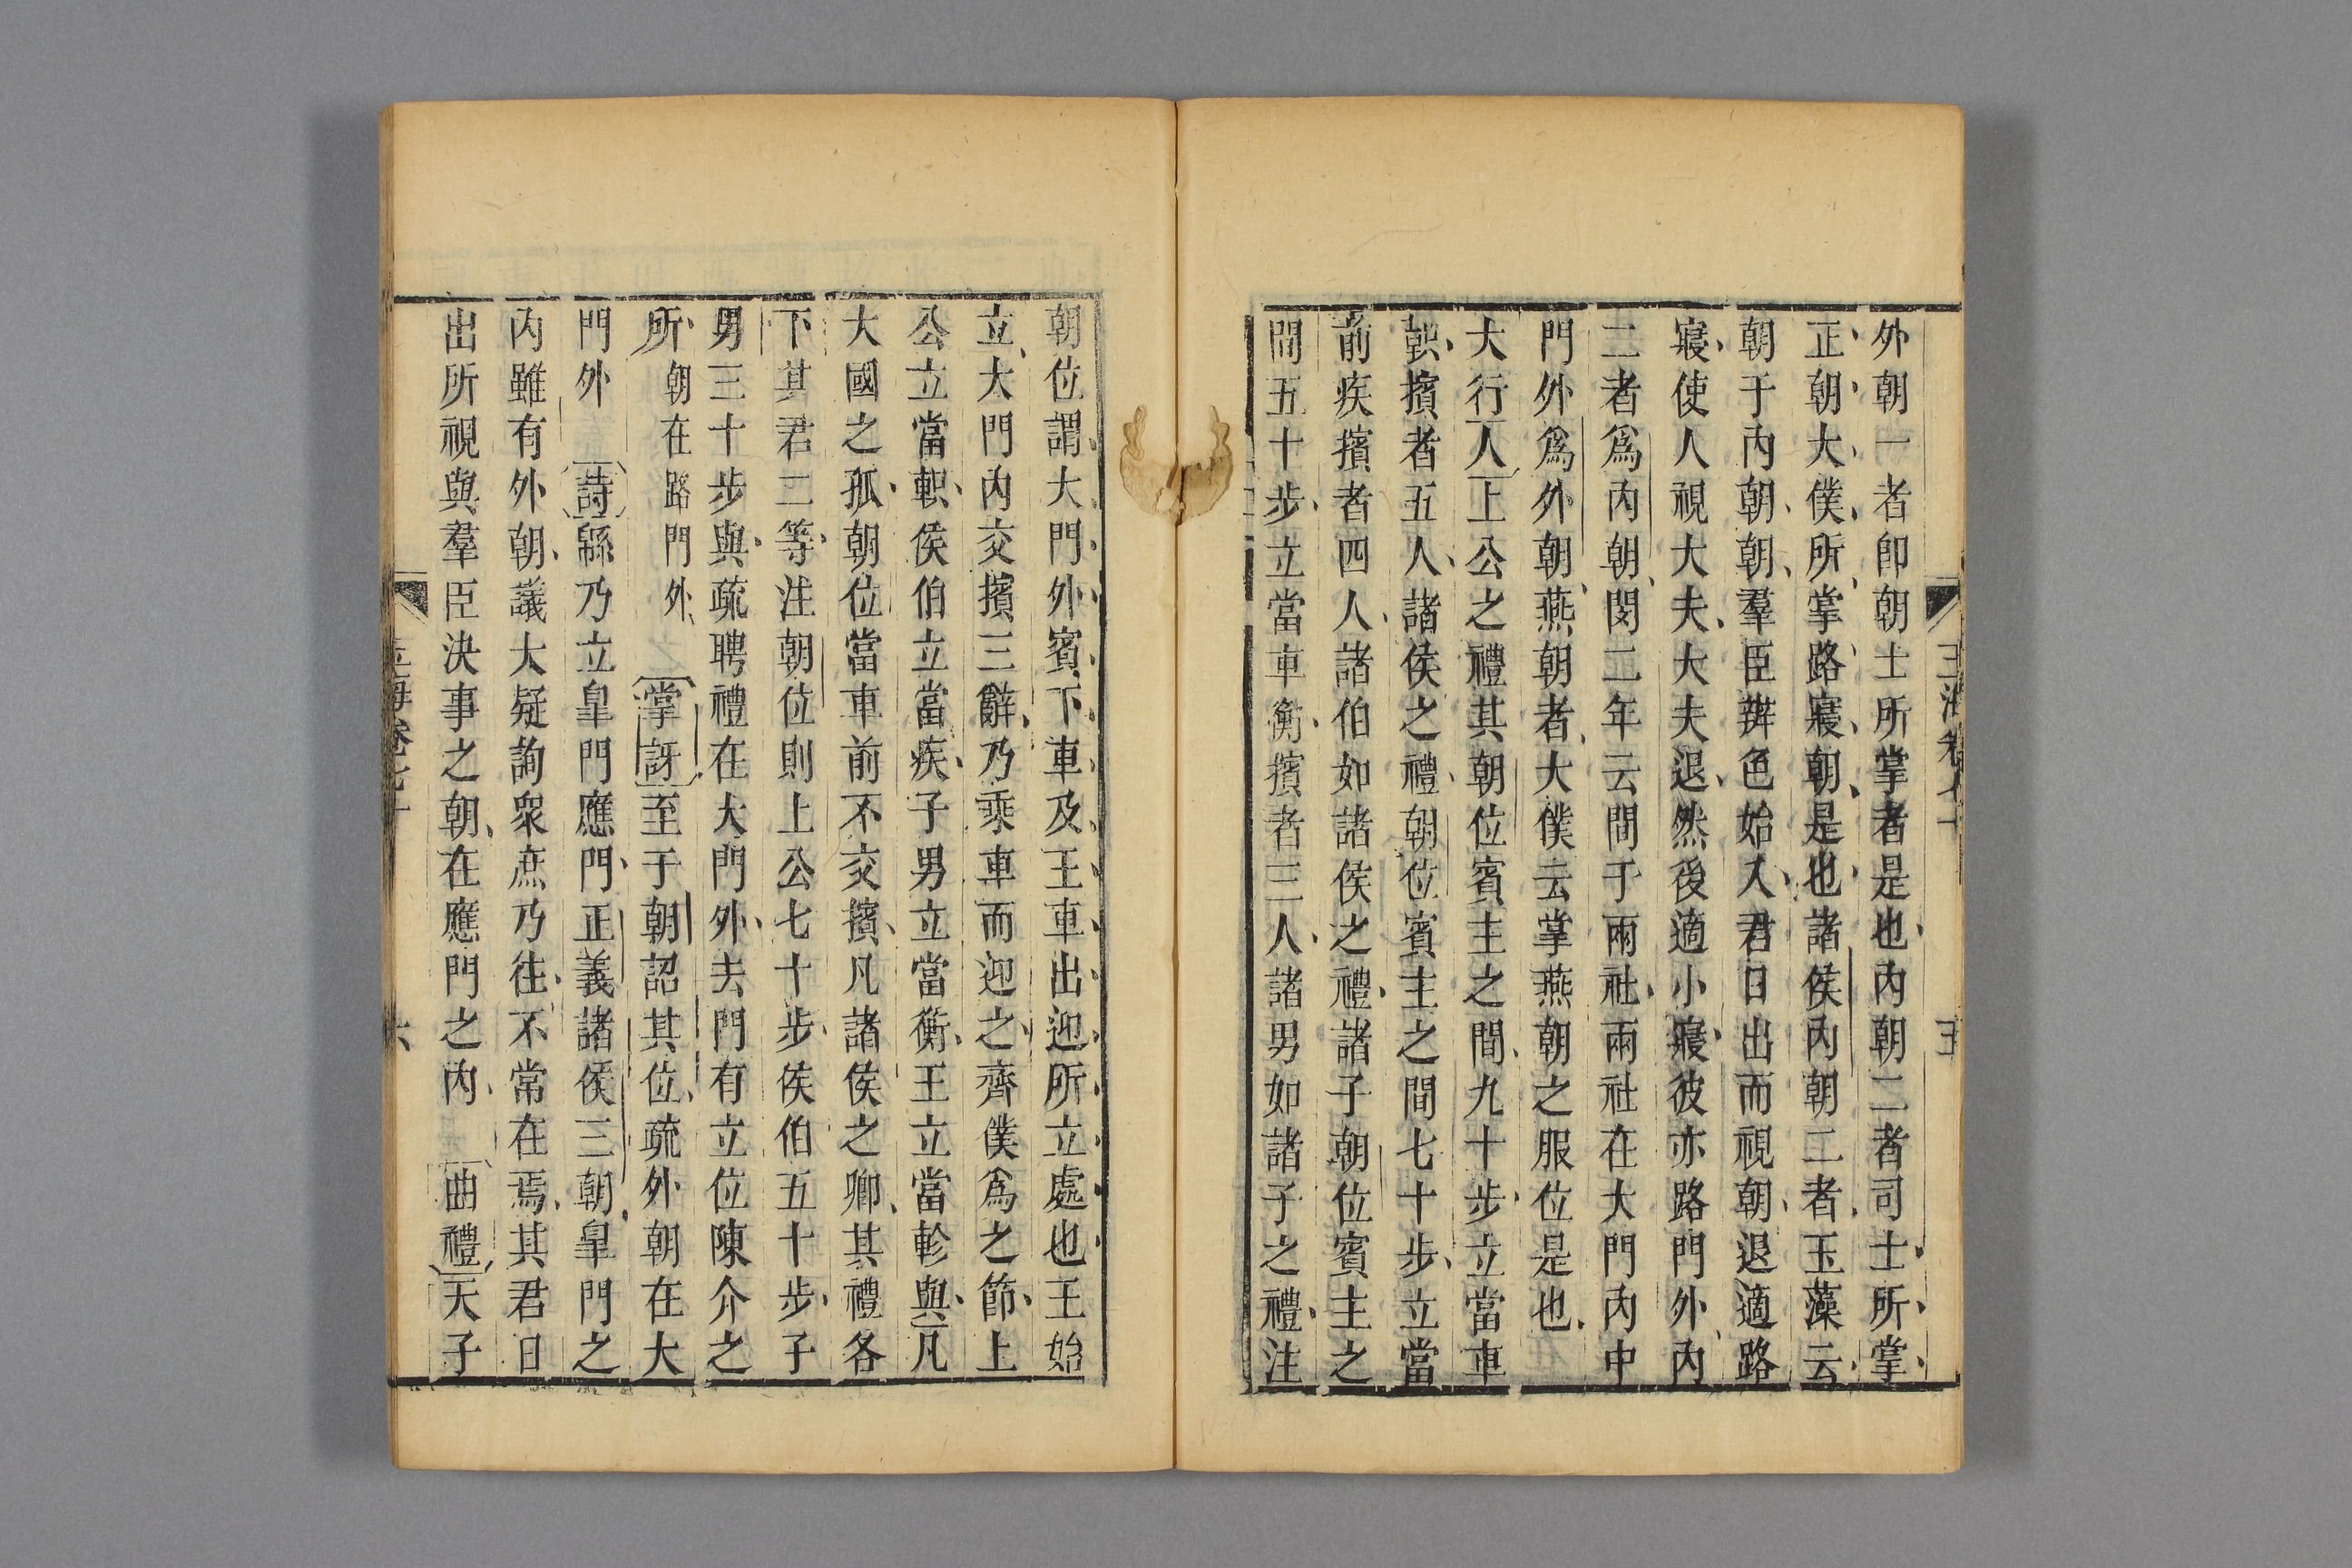 外朝一者卽朝士所掌者是也内朝二者司士所掌
正朝大僕所掌路寢朝是也諸侯内朝二者玉藻云
朝于内朝朝羣臣辨色始入君日出而視朝退適路
寢使人視大夫大夫退然後適小寢彼亦路門外内
二者爲内朝閔二年云間于兩社兩社在大門内中
門外爲外朝燕朝者大僕云掌燕朝之服位是也
大行人上公之禮其朝位賓主之間九十步立當車
軹擯者五人諸侯之禮朝位賓主之間七十步立當
前疾擯者四人諸伯如諸侯之禮諸子朝位賓主之
間五十步立當車衡擯者三人諸男如諸子之禮注
朝位謂大門外賓下車及王車出迎所立處也王始
立大門内交擯三辭乃乘車而迎之齊僕爲之節上
公立當軹侯伯立當疾子男立當衡王立當軫與凡
大國之孤朝位當車前不交擯凡諸侯之卿其禮各
下其君二等注朝位則上公七十步侯伯五十步子
男三十步與疏聘禮在大門外去門有立位陳介之
所朝在路門外 掌訝至于朝詔其位疏外朝在大
門外 詩緜乃立皐門應門正義諸侯三朝皐門之
内雖有外朝議大疑詢衆庶乃往不常在焉其君日
出所視與羣臣決事之朝在應門之内 曲禮天子